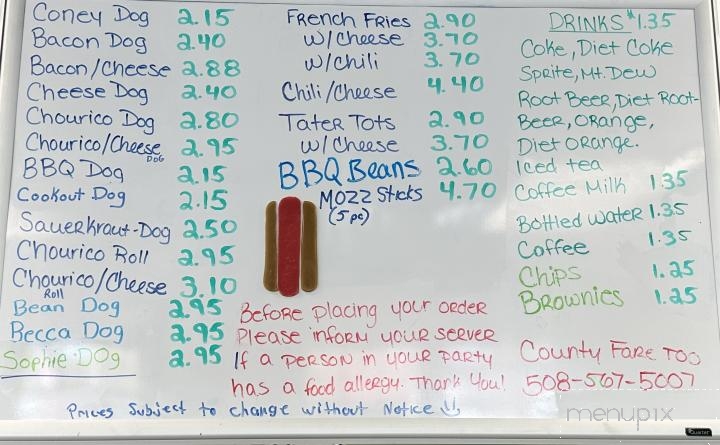 Coney Dog 2.15
Bacon Dog 2.40
Bacon/Cheese 2.88
Cheese Dog 2.40
Chourico Dog 2.80
Chourico/Cheese Dog 2.95
BBQ Dog 2.15
Cookout Dog 2.15
Sauerkraut-Dog 2.50
Chourico Roll 2.95
Chourico/Cheese Roll 3.10
Bean Dog 2.95
Becca Dog 2.95
Sophie Dog 2.95
French Fries 2.90
w/Cheese 3.70
w/Chili 3.70
Chili/Cheese 4.40
Tater Tots 2.90
w/Cheese 3.70
BBQ Beans 2.60
Mozz Sticks 4.70
(5 pc)
Drinks $1.35
Coke, Diet Coke
Sprite, Mt. Dew
Root Beer, Diet Root-
Beer, Orange,
Diet Orange.
Iced tea
Coffee Milk 1.35
Bottled Water 1.35
Coffee 1.35
Chips 1.25
Brownies 1.25
Before placing your order
Please inform your server
If a person in your party
has a food allergy. Thank you!
County Fare Too
508-567-5007
Prices Subject to change without Notice
menupix
Quartet